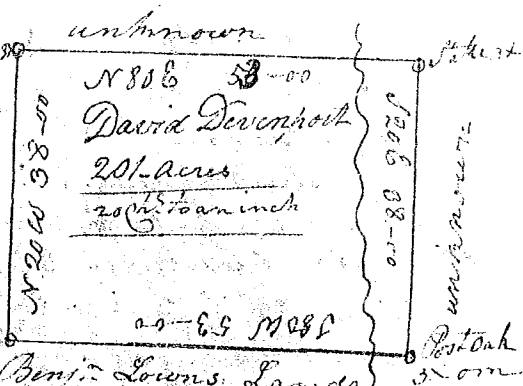 unknown
Stake 3x
N 80 E 53-00
David Devenport
201 Acres
20 Chs. to an inch
N 20 W 38-00
S 20 E 38-00
unknown
S 80 W 53-00
Benjn. Lowns Lands
Post Oak
3x om